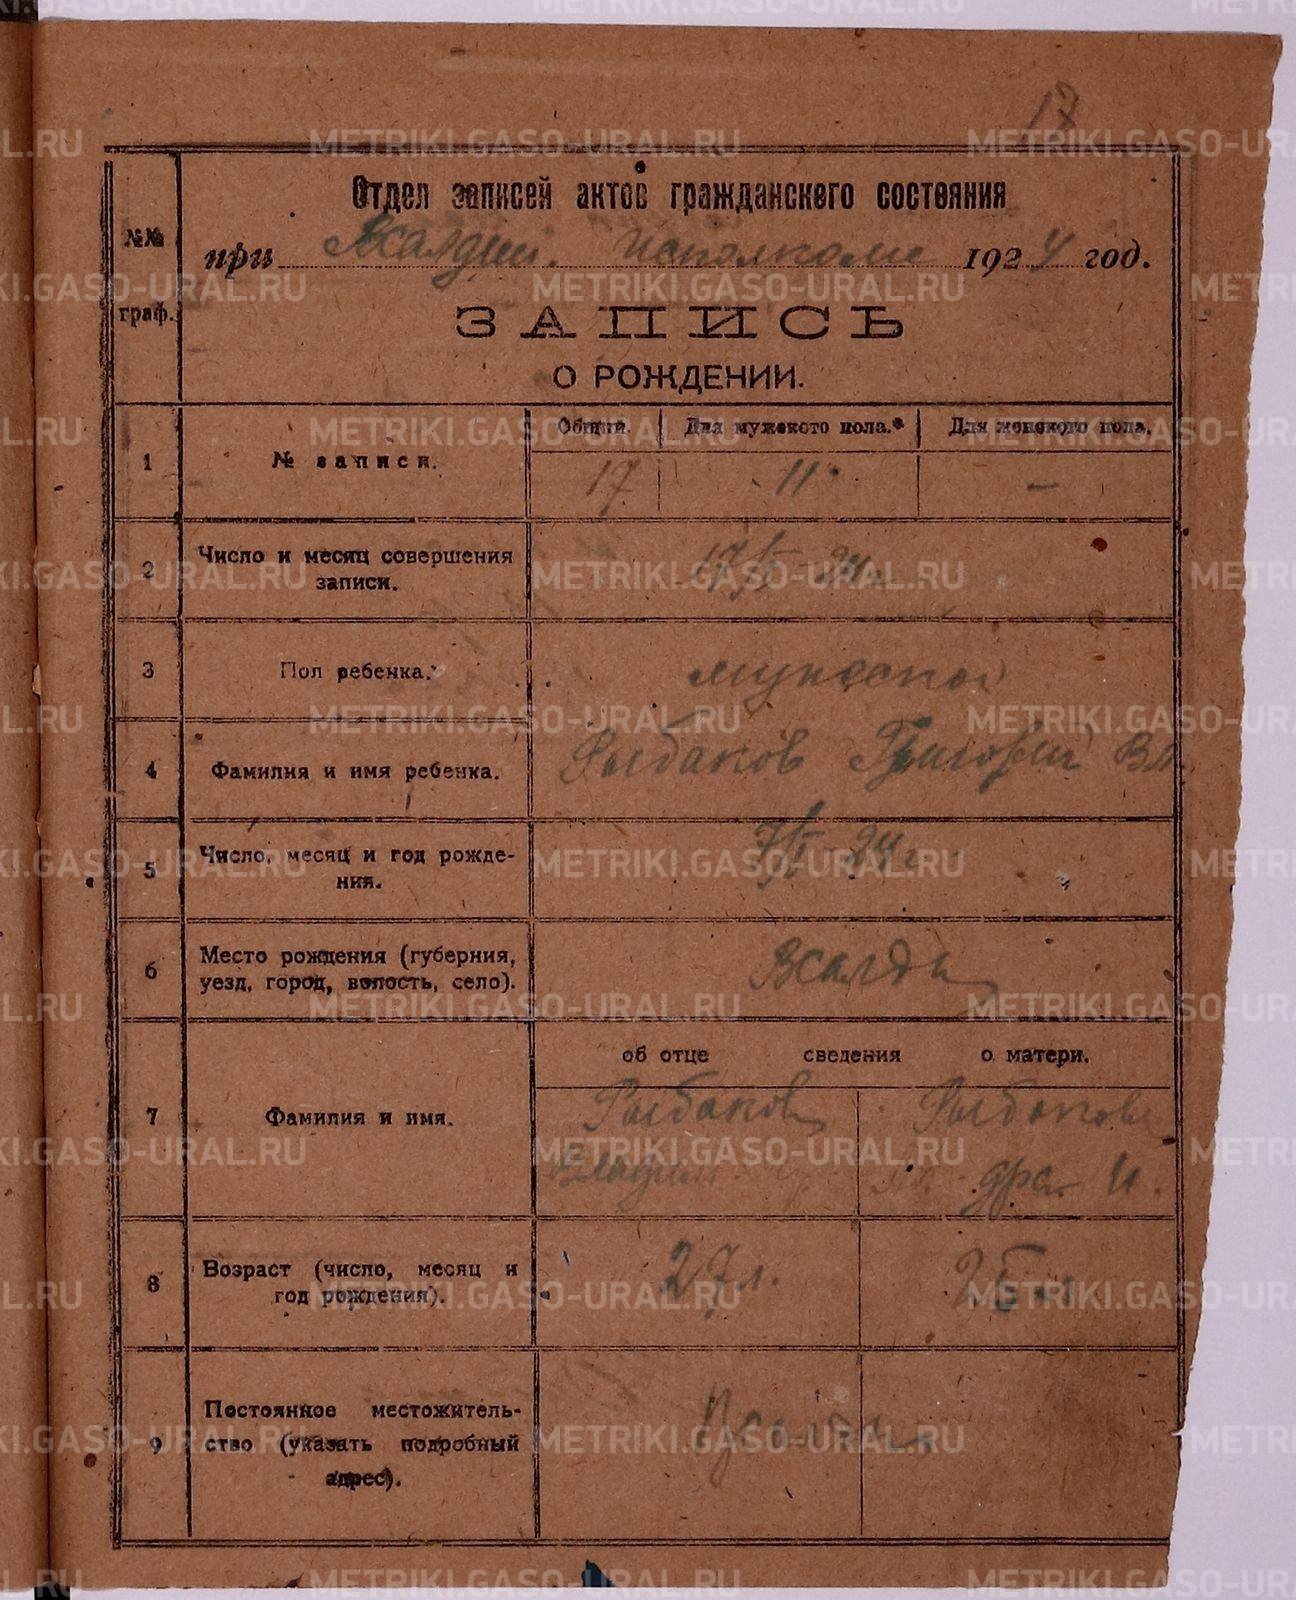 17
Отдел записей актов гражданского состояния
№№ граф.
при исполкоме 1924 год.
ЗАПИСЬ
О РОЖДЕНИИ.
1 № записи.
Общий. Для мужского пола.* Для женского пола.
17 11 –
2 Число и месяц совершения
записи.
17/I-24 г.
3 Пол ребенка.
мужеской
4 Фамилия и имя ребенка.
Рыбаков Григорий Вл.
5 Число, месяц и год рожде-
ния.
7/I-24 г.
6 Место рождения (губерния,
уезд, город, волость, село).
об отце сведения о матери.
7 Фамилия и имя.
Рыбаков Рыбакова
Владим. И.
8 Возраст (число, месяц и
год рождения).
27 л. 25 л.
9 Постоянное местожитель-
ство (указать подробный
адрес).
METRIKI.GASO-URAL.RU